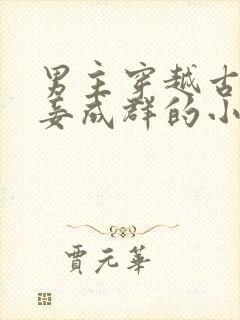 男主穿越古
妾成群的小
贾元华